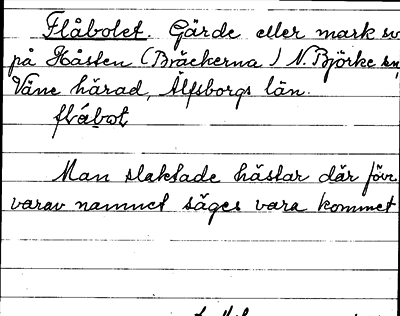 Flåbolet. Gärde eller mark sv
på Håsten (Bräckerna) N. Björke sn,
Väne härad, Älfsborgs län.
flábot
Man slaktade hästar där förr
varav namnet säges vara kommet